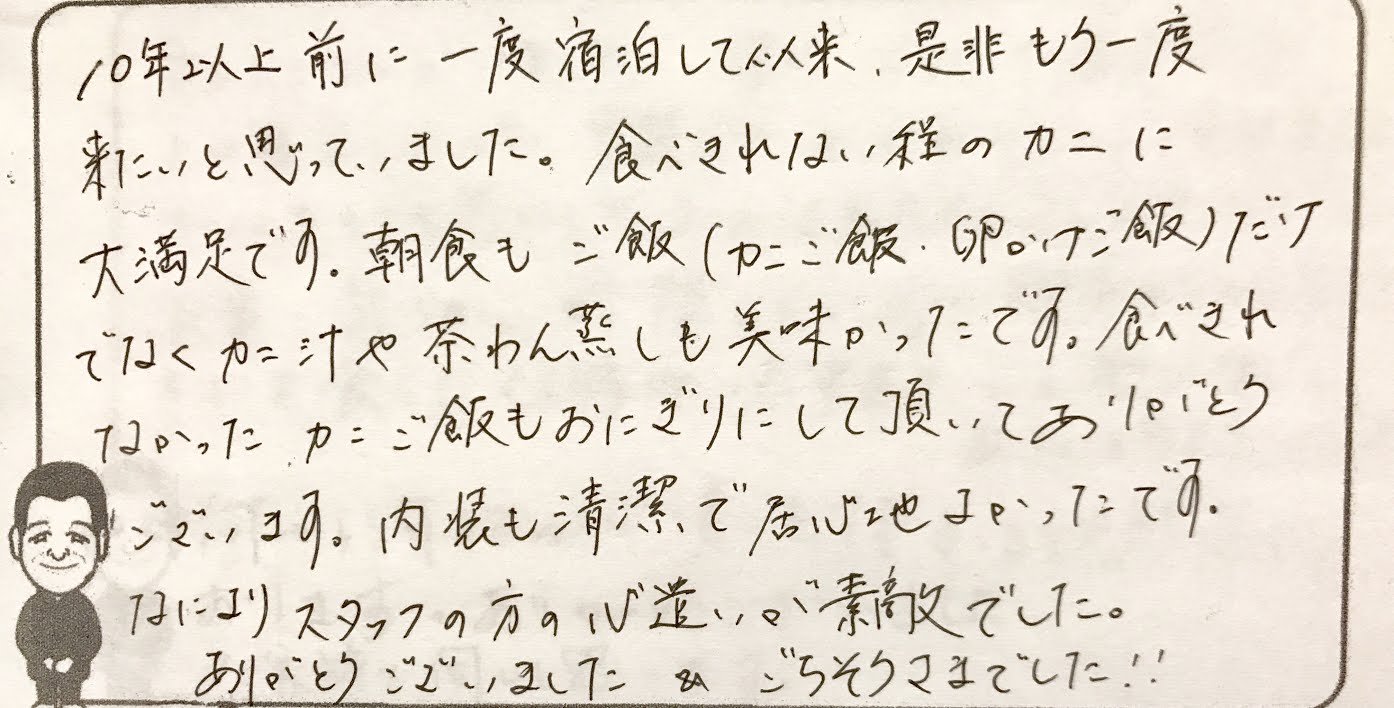 10年以上前に一度宿泊して以来、是非もう一度
来たいと思っていました。食べきれない程のカニに
大満足です。朝食もご飯(カニご飯・卵かけご飯)だけ
でなくカニ汁や茶わん蒸しも美味かったです。食べきれ
なかったカニご飯もおにぎりにして頂いてありがとう
ございます。内装も清潔で居心地よかったです。
なによりスタッフの方の心遣いが素敵でした。
ありがとうございました & ごちそうさまでした!!